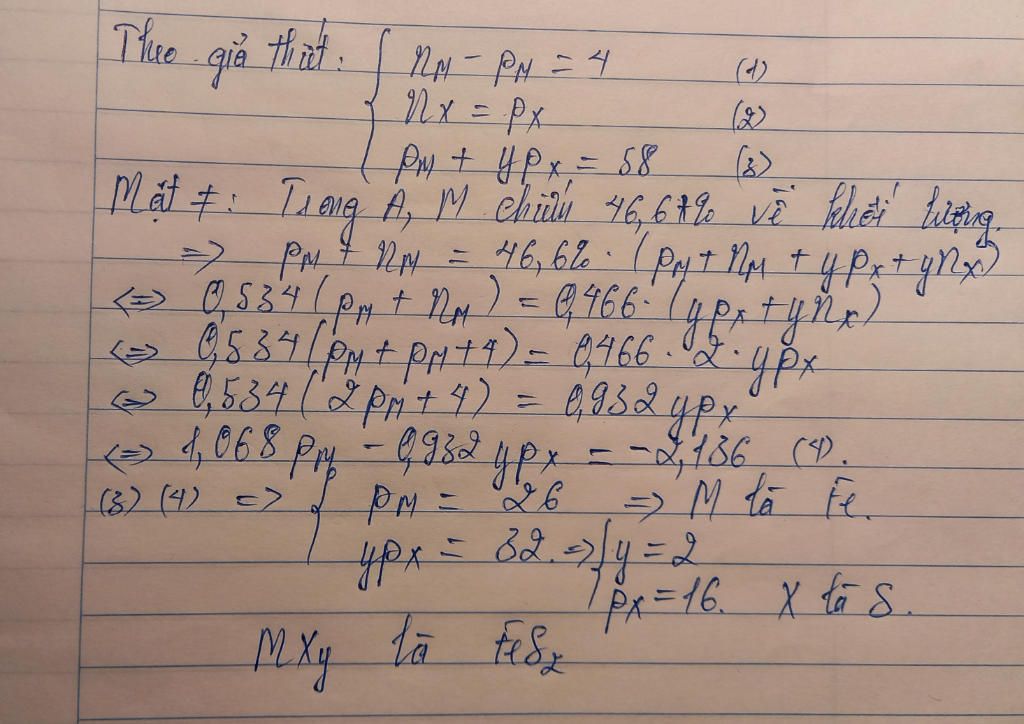 Theo giả thiết: { n_M - p_M = 4 (1)
n_X = p_X (2)
p_M + yp_X = 58 (3)
Mặt ≠: Trong A, M chiếm 46,67% về khối lượng.
=> p_M + n_M = 46,6% · (p_M + n_M + yp_X + yn_X)
<=> 0,534(p_M + n_M) = 0,466 · (yp_X + yn_X)
<=> 0,534(p_M + p_M + 4) = 0,466 · 2 · yp_X
<=> 0,534(2p_M + 4) = 0,932 yp_X
<=> 1,068 p_M - 0,932 yp_X = -2,136 (4).
(3) (4) => { p_M = 26 => M là Fe.
yp_X = 32. => { y = 2
p_X = 16. X là S.
MXy là FeS₂